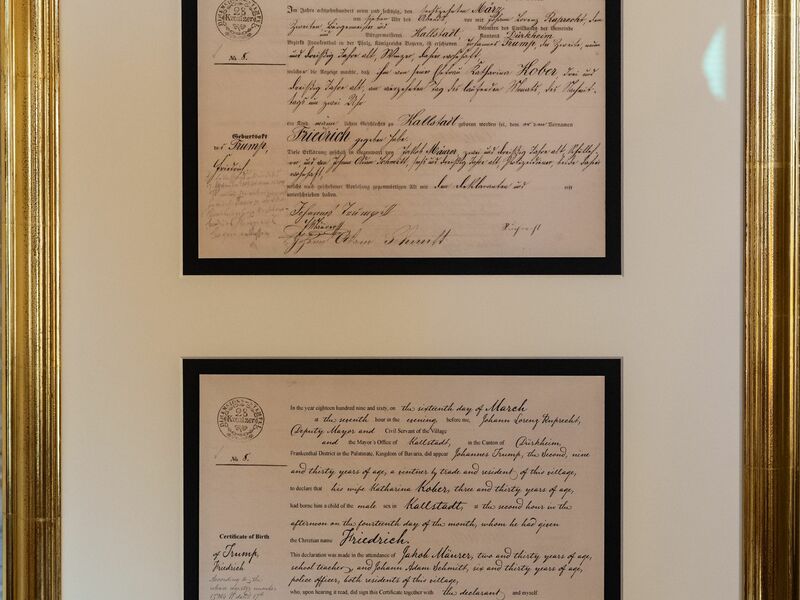 Im Jahre achtzehnhundert neun und sechzig, den sechszehnten März
um sieben Uhr des Abends vor mir Johann Lorenz Ruprecht, dem
Zweiten Bürgermeister und Beamten des Civilstandes der Gemeinde
und Bürgermeisterei Kallstadt, Kantons Dürkheim
Bezirk Frankenthal in der Pfalz, Königreichs Bayern, ist erschienen Johannes Trump der Zweite, neun
und dreißig Jahre alt, Winzer, dahier wohnhaft,
welcher die Anzeige machte, daß ihm von seiner Ehefrau Katharina Kober drei und
dreißig Jahre alt, am vierzehnten Tag des laufenden Monats, des Nachmit-
tags um zwei Uhr
ein Kind männlichen Geschlechts zu Kallstadt geboren worden sei, dem er den Vornamen
Friedrich gegeben habe.
Diese Erklärung geschah in Gegenwart von Jakob Mäurer, zwei und dreißig Jahre alt,
und von Johann Adam Schmitt, sechs und dreißig Jahre alt, Polizeidiener, beide dahier
wohnhaft,
welche nach geschehener Vorlesung gegenwärtigen Akt mit dem Deklaranten und mir
unterschrieben haben.
Johannes Trump II
Mäurer
Johann Adam Schmitt
Ruprecht
28
Kreuzer
№ 8.
Geburtsakt
des Trump,
Friedrich
DIMENSIONS-STEMPEL
28
Kreutzers
№ 8.
In the year eighteen hundred nine and sixty, on the sixteenth day of March
a the seventh hour in the evening, before me, Johann Lorenz Ruprecht,
Deputy Mayor and Civil Servant of the Village
and the Mayor's Office of Kallstadt, in the Canton of Dürkheim,
Frankenthal District in the Palatinate, Kingdom of Bavaria, did appear Johannes Trump, the Second, nine
and thirty years of age, a vintner by trade and resident of this village,
to declare that his wife Katharina Kober, three and thirty years of age,
had borne him a child of the male sex in Kallstadt, a the second hour in the
afternoon on the fourteenth day of the month, whom he had given
the Christian name Friedrich.
This declaration was made in the attendance of Jakob Mäurer, two and thirty years of age,
school teacher, and Johann Adam Schmitt, six and thirty years of age,
police officer, both residents of this village,
who, upon hearing it read, did sign this Certificate together with the declarant and myself
Certificate of Birth
of Trump,
Friedrich
According to the